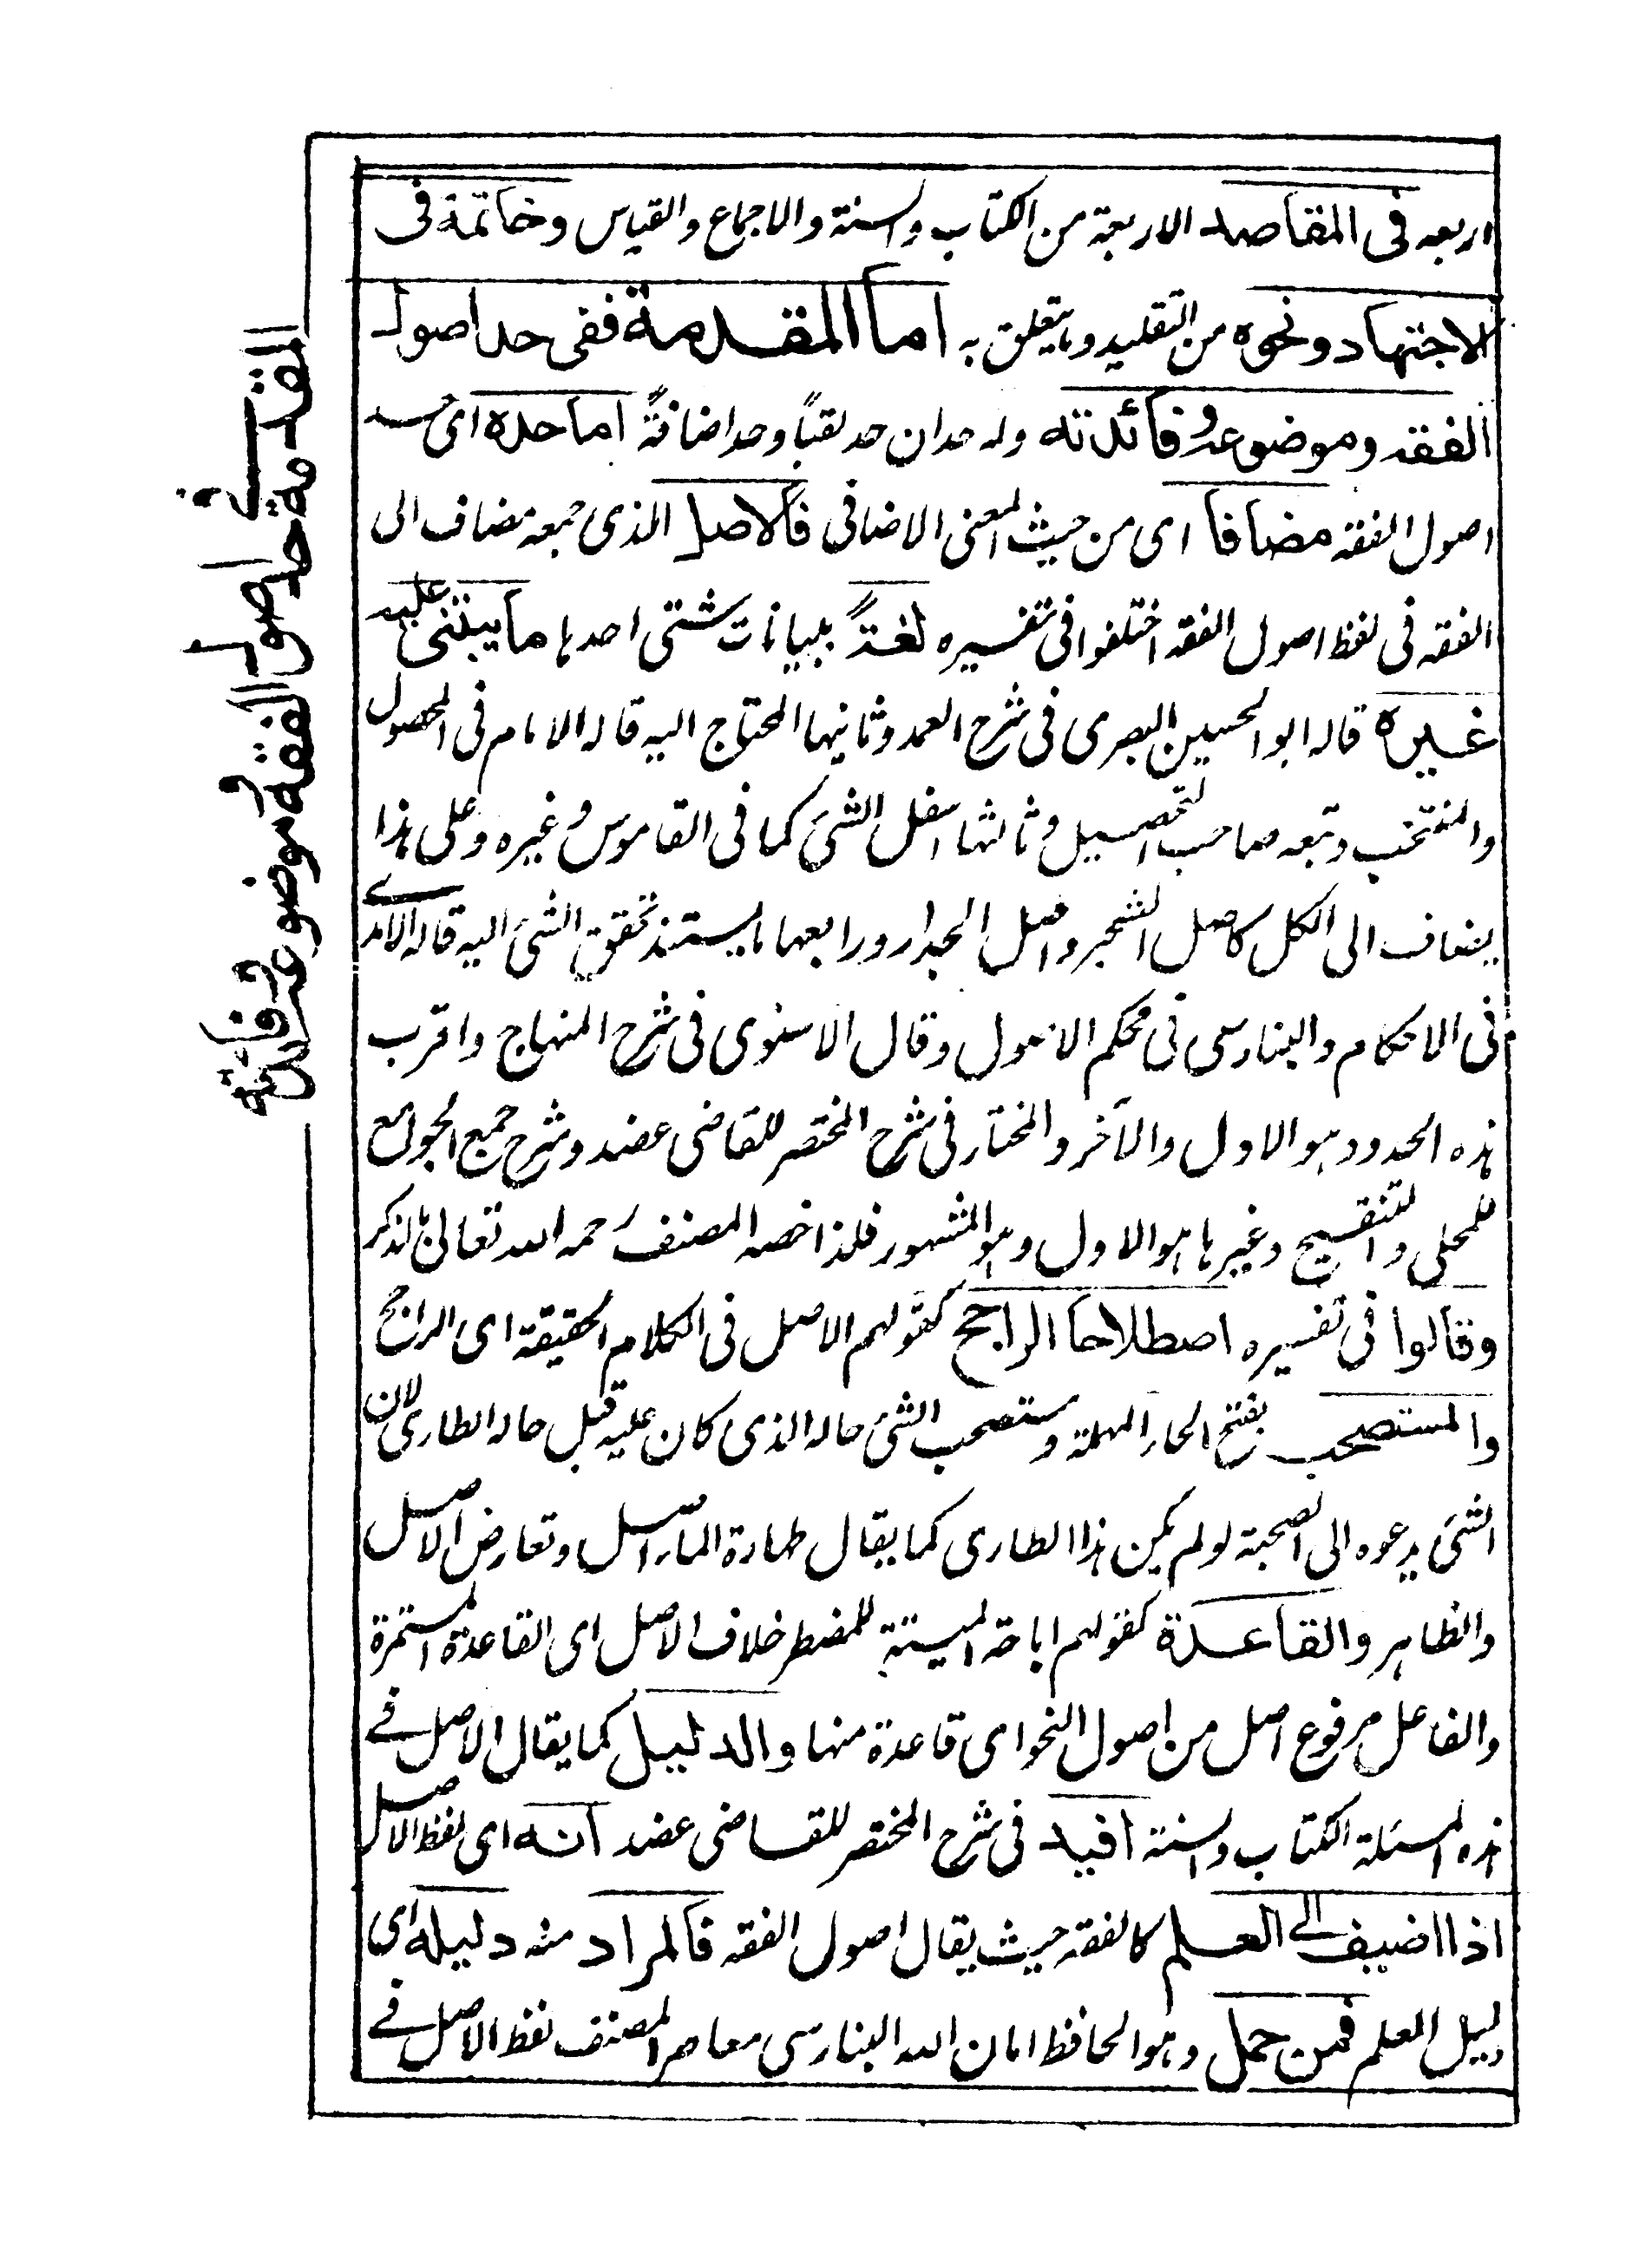 اربعه فى المقاصد الاربعة من الكتاب والسنة والاجماع والقياس وخاتمة فى
الاجتهاد ونحوه من التقليد وما يتعلق به اما المقدمة ففى حد اصول
الفقه وموضوعه وفائدته وله حدان حد لقباً وحد اضافةً اما حده اى حد
اصول الفقه مضافا اى من حيث المعنى الاضافى فالاصل الذى جمعه مضاف الى
الفقه فى لفظ اصول الفقه اختلفوا فى تفسيره لغةً ببيانات شتى احدها ما يبتنى عليه
غيره قاله ابو الحسين البصرى فى شرح العمد وثانيها المحتاج اليه قاله الامام فى المحصول
والمنتخب وتبعه صاحب التحصيل وثالثها اسفل الشئ كما فى القاموس وغيره وعلى هذا
يضاف الى الكل كاصل الشجر واصل الجدار ورابعها ما يستند تحقق الشئ اليه قاله الآمدى
فى الاحكام والبنارسى فى محكم الاصول وقال الاسنوى فى شرح المنهاج واقرب
هذه الحدود هو الاول والآخر والمختار فى شرح المختصر للقاضى عضد وشرح جمع الجوامع
للمحلى والتنقيح وغيرها هو الاول وهو المشهور فلذا خصه المصنف رحمه الله تعالى بالذكر
وقالوا فى تفسيره اصطلاحا الراجح كقولهم الاصل فى الكلام الحقيقة اى الراجح
والمستصحب بفتح الحاء المهملة ومستصحب الشئ حاله الذى كان عليه قبل حاله الطارى لان
الشئ يدعوه الى الصحبة لو لم يكن هذا الطارى كما يقال طهارة الماء اصل وتعارض الاصل
والظاهر والقاعدة كقولهم اباحة الميتة للمضطر خلاف الاصل اى القاعدة المستمرة
والفاعل مرفوع اصل من اصول النحو اى قاعدة منها والدليل كما يقال الاصل فى
هذه المسئلة الكتاب والسنة افيد فى شرح المختصر للقاضى عضد انه اى لفظ الاصل
اذا اضيف الى العلم كالفقه حيث يقال اصول الفقه فالمراد منه دليله اى
دليل العلم فمن حمل وهو الحافظ امان الله البنارسى معاصر المصنف لفظ الاصل فى
المقدمة فى حد اصول الفقه وموضوعه وفائدته